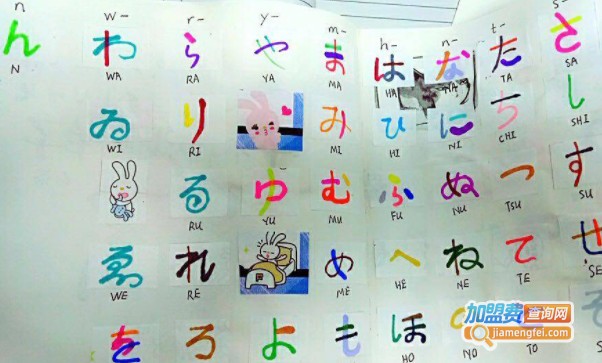 n w- r- y- m- h- n- t- s-
ん わ ら や ま は な た さ
N WA RA YA MA HA NA TA SA
ゐ り み ひ に ち し
WI RI MI HI NI CHI SHI
る ゆ む ふ ぬ つ す
RU YU MU FU NU TSU SU
ゑ れ め へ ね て せ
WE RE ME HE NE TE SE
を ろ よ も ほ
HO NO TO
加盟费查询网
jiamengfei.com